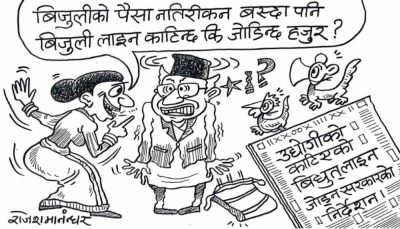 बिजुलीको पैसा नतिरीकन बस्दा पनि
बिजुली लाइन काटिन्छ कि जोडिन्छ हजुर ?
*!?
उद्योगीको
काटिएको
बिद्युतलाइन
जोड्न सरकारको
निर्देशन !
राजेश मानन्धर